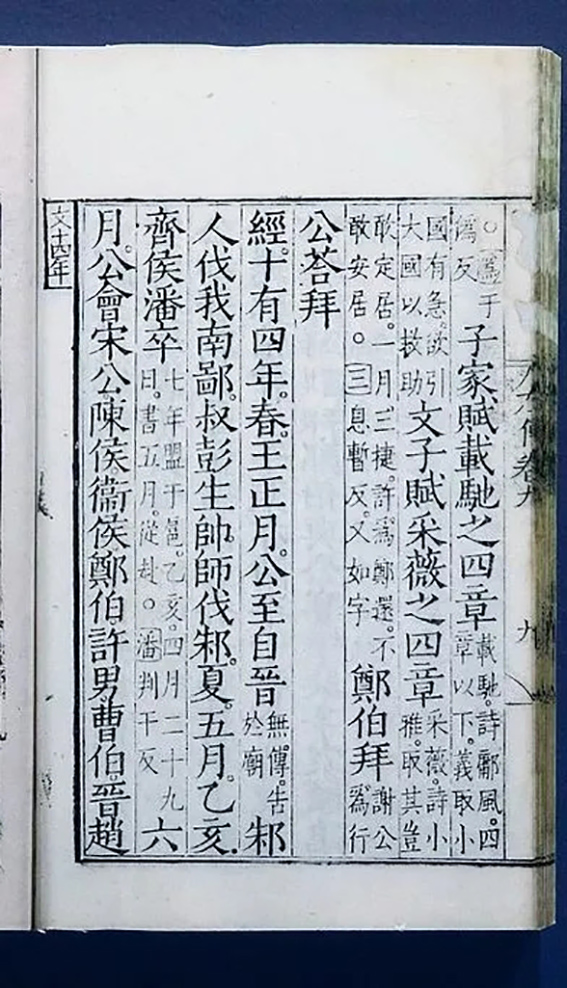 ○爲于僞反子家賦載馳之四章載馳。詩鄘風。四章以下。義取小
國有急。欲引大國以救助文子賦采薇之四章采薇。詩小雅。取其豈
敢定居。一月三捷。許爲鄭還。不敢安居。○三息暫反。又如字鄭伯拜謝公爲行
公荅拜
經。十有四年。春。王正月。公至自晉無傳。告於廟邾
人伐我南鄙。叔彭生帥。師伐邾。夏。五月。乙亥。
齊侯潘卒七年盟于扈。乙亥。四月二十九日。書五月。從赴。○潘判干反六
月。公會宋公陳侯衞侯鄭伯許男曹伯。晉趙
文十四年
卷九
九